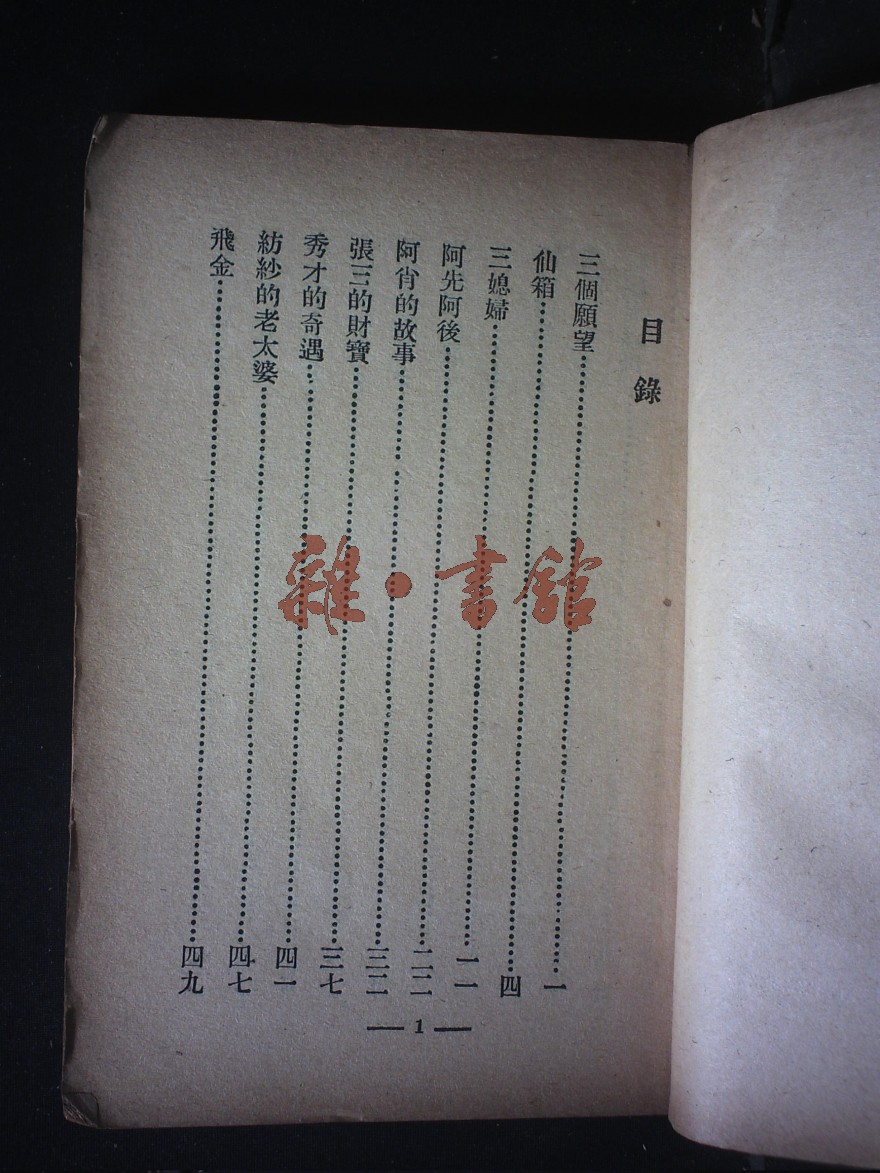 目錄
三個願望……一
仙箱……四
三媳婦……一一
阿先阿後……二二
阿肖的故事……三二
張三的財寶……三七
秀才的奇遇……四一
紡紗的老太婆……四七
飛金……四九
— 1 —
雜·書館